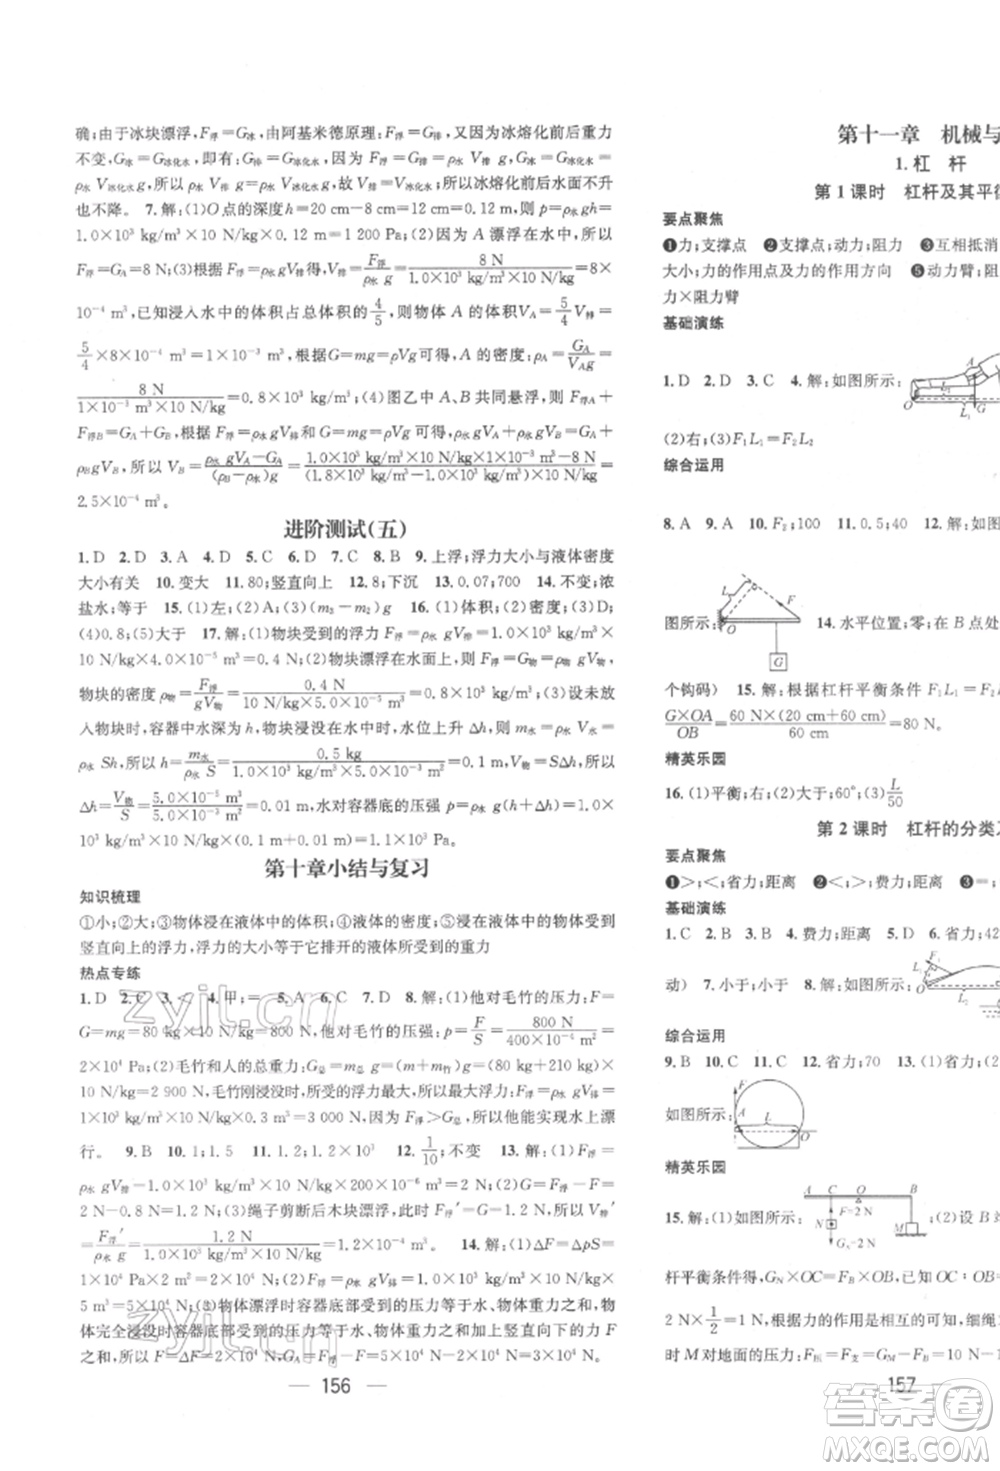 确;由于冰块漂浮,F浮=G冰,由阿基米德原理:F浮=G排,又因为冰熔化前后重力
不变,G冰=G冰化水,所以 G排=G冰化水,即有:G排=G冰化水,
ρ水 V排 g=ρ水 V冰化水 g,所以 V排=V冰化水,故液面不变,所以冰熔化后水面不升
也不降。 7. 解:(1)O点的深度h=20 cm-8 cm=12 cm=0.12 m,则p=ρ水gh=
1.0×10³ kg/m³×10 N/kg×0.12 m=1 200 Pa;(2)A漂浮在水中,所以,
F浮=GA=8 N;(3)根据F浮=ρ水gV排得,V排=F浮/(ρ水 g)=8 N/(1.0×10³ kg/m³×10 N/kg)=8×
10⁻⁴ m³,已知浸入水中的体积占总体积的4/5,则物体 A 的体积VA=5/4 V排=
5/4×8×10⁻⁴ m³=1×10⁻³ m³,根据G=mg=ρVg可得,A的密度:ρA=GA/(VA g)=
8 N/(1×10⁻³ m³×10 N/kg)=0.8×10³ kg/m³;(4)图乙中A、B共同悬浮,则F浮A+
F浮B=GA+GB,根据 F浮=ρ水gV排和 G=mg=ρVg 可得,ρ水g(VA+VB)=GA+
ρB gVB,所以 VB=(ρ水 gVA-GA)/((ρB-ρ水)g)=(1.0×10³ kg/m³×10 N/kg×1×10⁻³ m³-8 N)/((1.8×10³ kg/m³-1.0×10³ kg/m³)×10 N/kg)=
2.5×10⁻⁴ m³。
进阶测试(五)
1. D 2. D 3. A 4. D 5. C 6. D 7. C 8. B 9. 上浮;浮力大小与液体密度
大小有关 10. 变大 11. 80;竖直向上 12. 8;下沉 13. 0.07;700 14. 不变;浓
盐水;等于 15. (1)左;(2)A;(3)(m₃-m₂) 16. (1)体积;(2)密度;(3)D;
(4)0.8;(5)大于 17. 解:(1)物块受到的浮力 F浮=ρ水 gV排=1.0×10³ kg/m³×
10 N/kg×4.0×10⁻⁵ m³=0.4 N;(2)物块漂浮在水面上,所以,F浮=G物=ρ物gV物,
物块的密度 ρ物=F浮/(gV物)=0.4 N/(10 N/kg×5.0×10⁻⁵ m³)=0.8×10³ kg/m³;(3)设未放
入物块时,容器中水深为h,物块浸没在水中时,水位上升 Δh,则:m水=ρ水V水=
ρ水 Sh,所以 h=m水/(ρ水 S)=0.5 kg/(1.0×10³ kg/m³×5.0×10⁻³ m²)=0.1 m,水面升高的高度
Δh=V物/S=5.0×10⁻⁵ m³/5.0×10⁻³ m²=0.01 m,水对容器底的压强 p=ρ水 g(h+Δh)=1.0×
10³ kg/m³×10 N/kg×(0.1 m+0.01 m)=1.1×10³ Pa。
第十章小结与复习
知识梳理
①小;②大;③物体浸在液体中的体积;④液体的密度;⑤浸在液体中的物体受到
竖直向上的浮力,浮力的大小等于它排开的液体所受到的重力
热点专练
1. D 2. C 3. < 4. 甲;= 5. A 6. C 7. D 8. 解:(1)他对毛竹的压力:F=
G=mg=80 kg×10 N/kg=800 N,他对毛竹的压强:p=F/S=800 N/(400×10⁻⁴ m²)=
2×10⁴ Pa;(2)毛竹和人的总重力:G总=m总 g=(m+m竹)g=(80 kg+210 kg)×
10 N/kg=2 900 N,毛竹刚浸没时,所受的浮力最大,所以最大浮力:F浮=
ρ水 gV排=1×10³ kg/m³×10 N/kg×0.3 m³=3 000 N,因F浮>G总,所以他能实现水上漂
行。 9. B 10. 1;1.5 11. 1.2;1.2×10³ 12. 1/10;不变 13. 解:(1)F浮=
ρ水 gV排=1.0×10³ kg/m³×10 N/kg×200×10⁻⁶ m³=2 N;(2)G=F浮-F拉=
2 N-0.8 N=1.2 N;(3)绳子剪断后木块漂浮,此时 F浮′=G=1.2 N,V排=
F浮′/(ρ水 g)=1.2 N/(1.0×10³ kg/m³×10 N/kg)=1.2×10⁻⁴ m³。 14. 解:(1)ΔF=ΔpS=
5 m³=2 N;(3)物体漂浮时容器底部受到的压力等于水、物体重力之和,物
体完全浸没时容器底部受到的压力等于水、物体重力加上竖直向下的力 F
之和,所以 F=ΔF-ΔF′=3 N-2 N=1 N,GA+F=F浮,GA=F浮-F=2 N-1 N=1 N。
156
第十一章 机械与
1. 杠 杆
第 1 课时 杠杆及其平衡
要点聚焦
❶力;支撑点 ❷支撑点;动力;阻力 ❸互相抵消
大小;力的作用点及力的作用方向 ❺动力臂;阻
力×阻力臂
基础演练
1. D 2. D 3. C 4. 解:如图所示:
A
O
L₁
(2)右;(3)F₁L₁=F₂L₂
综合运用
8. A 9. A 10. F₂;100 11. 0.5;40 12. 解:如
图所示:
L
F
O
G
14. 水平位置;零;在 B 点
个钩码) 15. 解:根据杠杆平衡条件 F₁L₁=F₂L
G×OA/OB=60 N×(20 cm+60 cm)/60 cm=80 N。
精英乐园
16. (1)平衡;右;(2)大于;60°;(3)L/50
第 2 课时 杠杆的分类及
要点聚焦
❶>;<;省力;距离 ❷<;>;费力;距离 ❸=;
基础演练
1. C 2. B 3. B 4. 费力;距离 5. D 6. 省力;42
动) 7. 小于;小于 8. 解:如图所示:
L₁
F₁
O
L₂
综合运用
9. B 10. C 11. C 12. 省力;70 13. (1)省力;
如图所示:
F
L
A
O
精英乐园
15. 解:(1)如图所示:
A
C
O
B
F=2 N
N
M
G=2 N
;(2)设 B 端
杆平衡条件得,GN×OC=FB×OB,已知 OC:O
2 N×1/2=1 N,根据力的作用是相互的可知,细绳
时M对地面的压力:F压=F支=GM-FB=10 N-1
157
zyjl.cn
zyjl.cn
答案圈
MXQE.COM